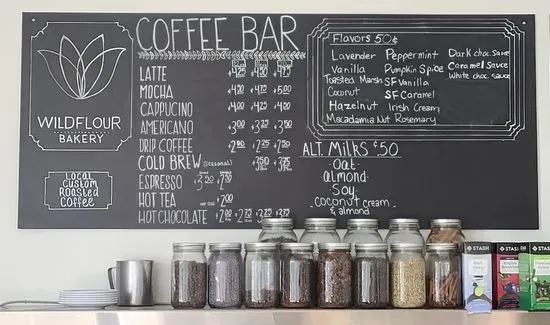 COFFEE BAR
WILDFLOUR
BAKERY
LOCAL
CUSTOM
ROASTED
COFFEE
LATTE
MOCHA
CAPPUCINO
AMERICANO $3.00 $3.25 $3.50
DRIP COFFEE $2.00 $2.25 $2.50
COLD BREW (SEASONAL)
ESPRESSO
HOT TEA
HOT CHOCOLATE
Flavors 50¢
Lavender Peppermint Dark choc. sauce
Vanilla Pumpkin Spice Caramel Sauce
Toasted Marsh SF Vanilla White choc sauce
Coconut SF Caramel
Hazelnut Irish Cream
Macadamia Nut Rosemary
ALT. Milks $.50
Oat
almond
Soy
coconut cream
& almond
STASH
STASH
STASH